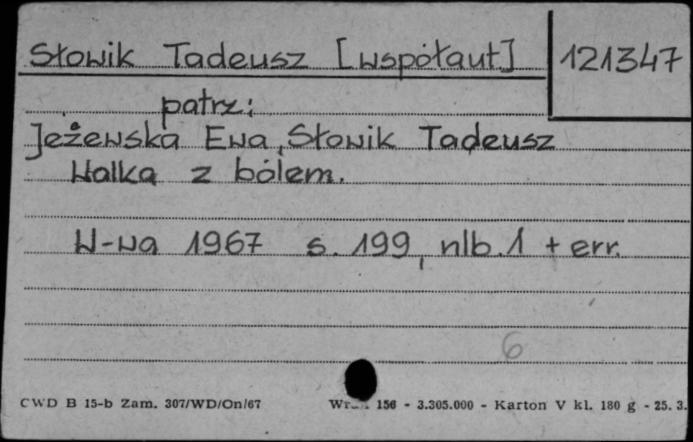 Słowik Tadeusz [współaut] 121347
patrz:
Jeżewska Ewa, Słowik Tadeusz
Walka z bólem.
W-wa 1967 s. 199, nlb. 1 + err.
6
CWD B 15-b Zam. 307/WD/On/67 156 - 3.305.000 - Karton V kl. 180 g - 25. 3.